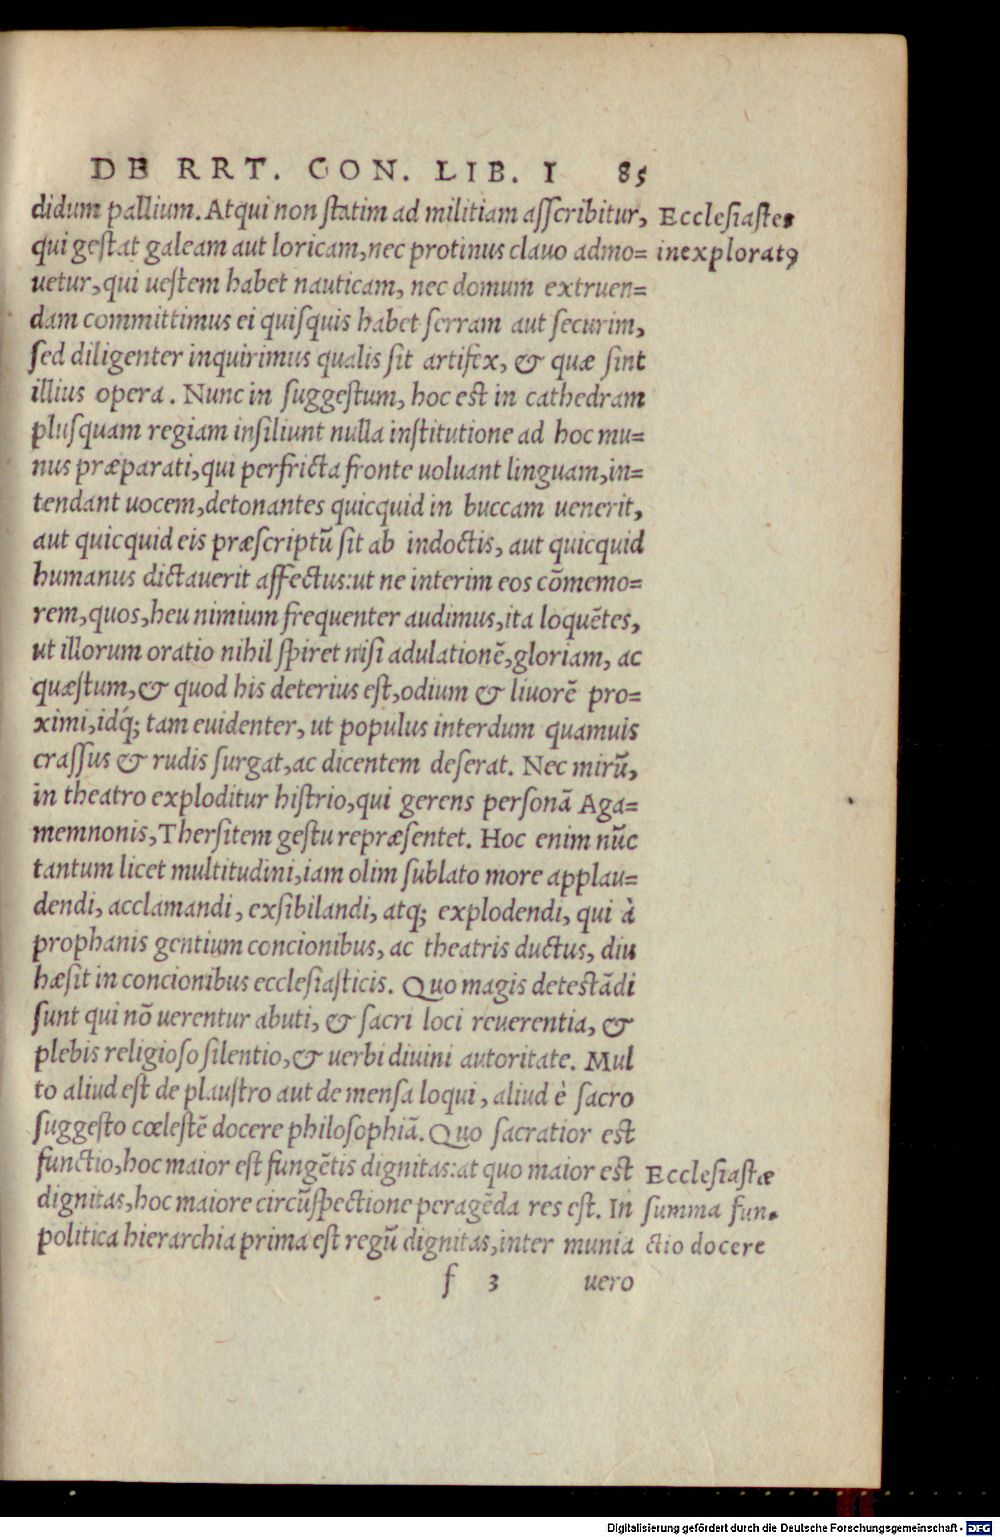 DE RRT. CON. LIB. I 85
didum pallium. Atqui non ſtatim ad militiam aſſcribitur,
Eccleſiaſtes
qui geſtat galeam aut loricam, nec protinus clauo admo=
inexploratꝰ
uetur, qui ueſtem habet nauticam, nec domum extruen=
dam committimus ei quiſquis habet ſerram aut ſecurim,
ſed diligenter inquirimus qualis ſit artifex, & quæ ſint
illius opera. Nunc in ſuggeſtum, hoc eſt in cathedram
pluſquam regiam inſiliunt nulla inſtitutione ad hoc mu=
nus præparati, qui perfricta fronte uoluant linguam, in=
tendant uocem, detonantes quicquid in buccam uenerit,
aut quicquid eis præſcriptũ ſit ab indoctis, aut quicquid
humanus dictauerit affectus: ut ne interim eos cõmemo=
rem, quos, heu nimium frequenter audimus, ita loquẽtes,
ut illorum oratio nihil ſpiret niſi adulationẽ, gloriam, ac
quæſtum, & quod his deterius eſt, odium & liuorẽ pro=
ximi, idq́; tam euidenter, ut populus interdum quamuis
craſſus & rudis ſurgat, ac dicentem deſerat. Nec mirũ,
in theatro exploditur hiſtrio, qui gerens perſonã Aga=
memnonis, Therſitem geſtu repræſentet. Hoc enim nũc
tantum licet multitudini, iam olim ſublato more applau=
dendi, acclamandi, exſibilandi, atq; explodendi, qui à
prophanis gentium concionibus, ac theatris ductus, diu
hæſit in concionibus eccleſiaſticis. Quo magis deteſtãdi
ſunt qui nõ uerentur abuti, & ſacri loci reuerentia, &
plebis religioſo ſilentio, & uerbi diuini autoritate. Mul
to aliud eſt de plauſtro aut de menſa loqui, aliud è ſacro
ſuggeſto cœleſtẽ docere philoſophiã. Quo ſacratior eſt
functio, hoc maior eſt fungẽtis dignitas: at quo maior eſt
Eccleſiaſtæ
dignitas, hoc maiore circũſpectione peragẽda res eſt. In
ſumma fun.
politica hierarchia prima eſt regũ dignitas, inter munia
ctio docere
f 3 uero
Digitalisierung gefördert durch die Deutsche Forschungsgemeinschaft - DFG